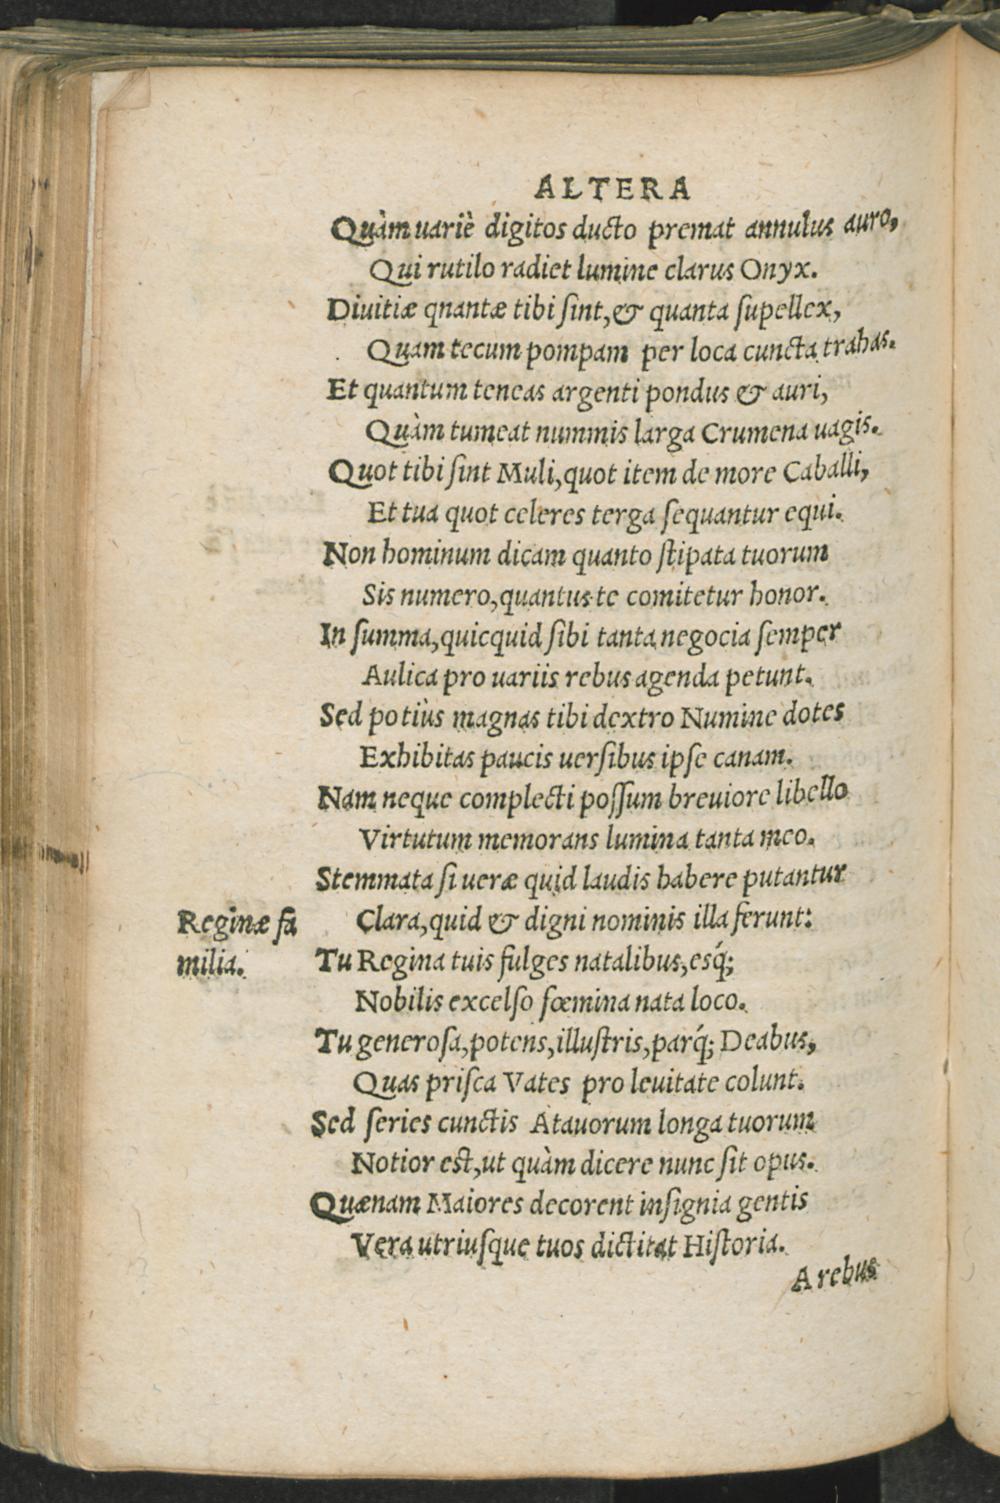 ALTERA
Quàm uariè digitos ducto premat annulus auro,
Qui rutilo radiet lumine clarus Onyx.
Diuitiæ qnantæ tibi ſint, & quanta ſupellex,
Quam tecum pompam per loca cuncta trahas.
Et quantum teneas argenti pondus & auri,
Quàm tumeat nummis larga Crumena uagis.
Quot tibi ſint Muli, quot item de more Caballi,
Et tua quot celeres terga ſequantur equi.
Non hominum dicam quanto ſtipata tuorum
Sis numero, quantus te comitetur honor.
In ſumma, quicquid ſibi tanta negocia ſemper
Aulica pro uariis rebus agenda petunt.
Sed potiùs magnas tibi dextro Numine dotes
Exhibitas paucis uerſibus ipſe canam.
Nam neque complecti poſſum breuiore libello
Virtutum memorans lumina tanta meo.
Stemmata ſi ueræ quid laudis habere putantur
Reginæ fa
milia.
Clara, quid & digni nominis illa ferunt:
Tu Regina tuis fulges natalibus, esq́;
Nobilis excelſo fœmina nata loco.
Tu generoſa, potens, illuſtris, parq́; Deabus,
Quas priſca Vates pro leuitate colunt.
Sed ſeries cunctis Atauorum longa tuorum
Notior eſt, ut quàm dicere nunc ſit opus.
Quænam Maiores decorent inſignia gentis
Vera utriuſque tuos dictitat Hiſtoria.
A rebus